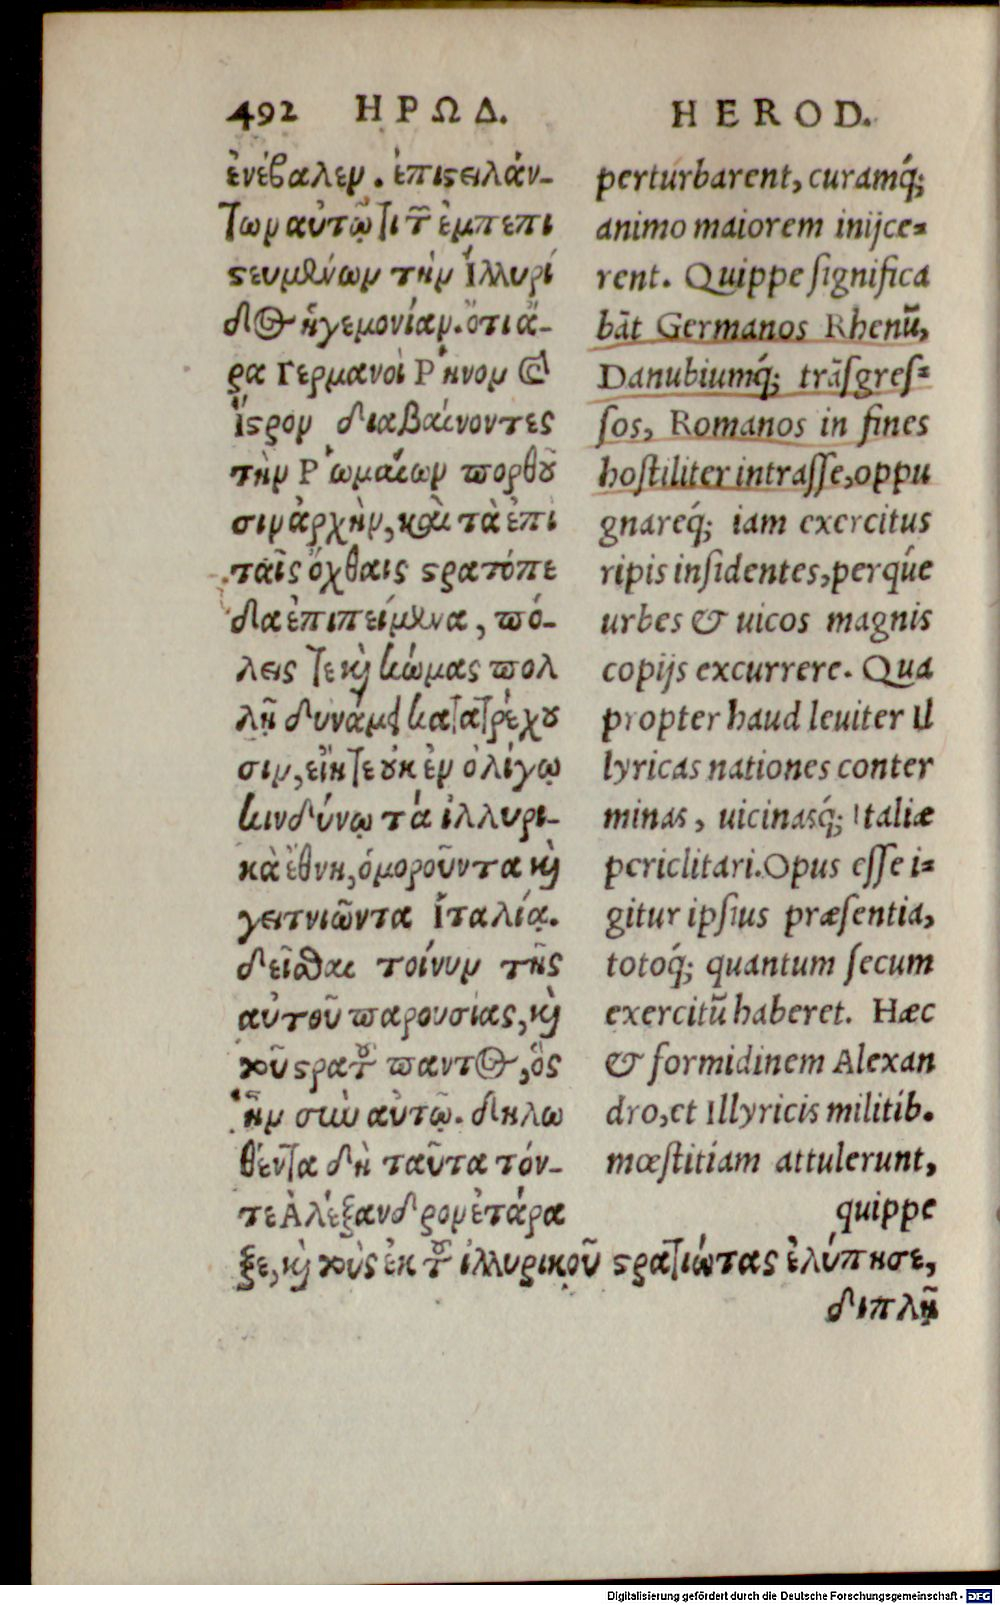 492 ΗΡΩΔ.
ἐνέβαλεν. ἐπιστειλάν-
των αὐτῷ τι τ̃ ἐμπεπι
στευμένων τὴν Ἰλλυρί
δος ἡγεμονίαν. ὅτι ἄ-
ρα Γερμανοὶ Ῥῆνον καὶ
Ἴστρον διαβαίνοντες
τὴν Ῥωμαίων πορθοῦ
σιν ἀρχὴν, καὶ τὰ ἐπὶ
ταῖς ὄχθαις στρατόπε
δα ἐπιπείμενα, πό-
λεις τε καὶ κώμας πολ
λῇ δυνάμει κατατρέχου
σιν, εἴη τε οὐκ ἐν ὀλίγῳ
κινδύνῳ τὰ ἰλλυρι-
κὰ ἔθνη, ὁμοροῦντα καὶ
γειτνιῶντα Ἰταλίᾳ.
δεῖσθαι τοίνυν τῆς
αὐτοῦ παρουσίας, καὶ
τοῦ στρατοῦ παντὸς, ὃς
ἦν σὺν αὐτῷ. δηλω
θέντα δὴ ταῦτα τόν-
τε Ἀλέξανδρον ἐτάρα
ξε, καὶ τοὺς ἐκ τοῦ ἰλλυρικοῦ στρατιώτας ἐλύπησε,
διπλῇ
HEROD.
perturbarent, curamq́;
animo maiorem inijce=
rent. Quippe significa
bāt Germanos Rhenū,
Danubiumq́; trāsgres=
sos, Romanos in fines
hostiliter intrasse, oppu
gnareq́; iam exercitus
ripis insidentes, perque
urbes & uicos magnis
copijs excurrere. Qua
propter haud leuiter Il
lyricas nationes conter
minas, uicinasq́; Italiæ
periclitari. Opus esse i=
gitur ipsius præsentia,
totoq́; quantum secum
exercitū haberet. Hæc
& formidinem Alexan
dro, et Illyricis militib.
mœstitiam attulerunt,
quippe
Digitalisierung gefördert durch die Deutsche Forschungsgemeinschaft - DFG